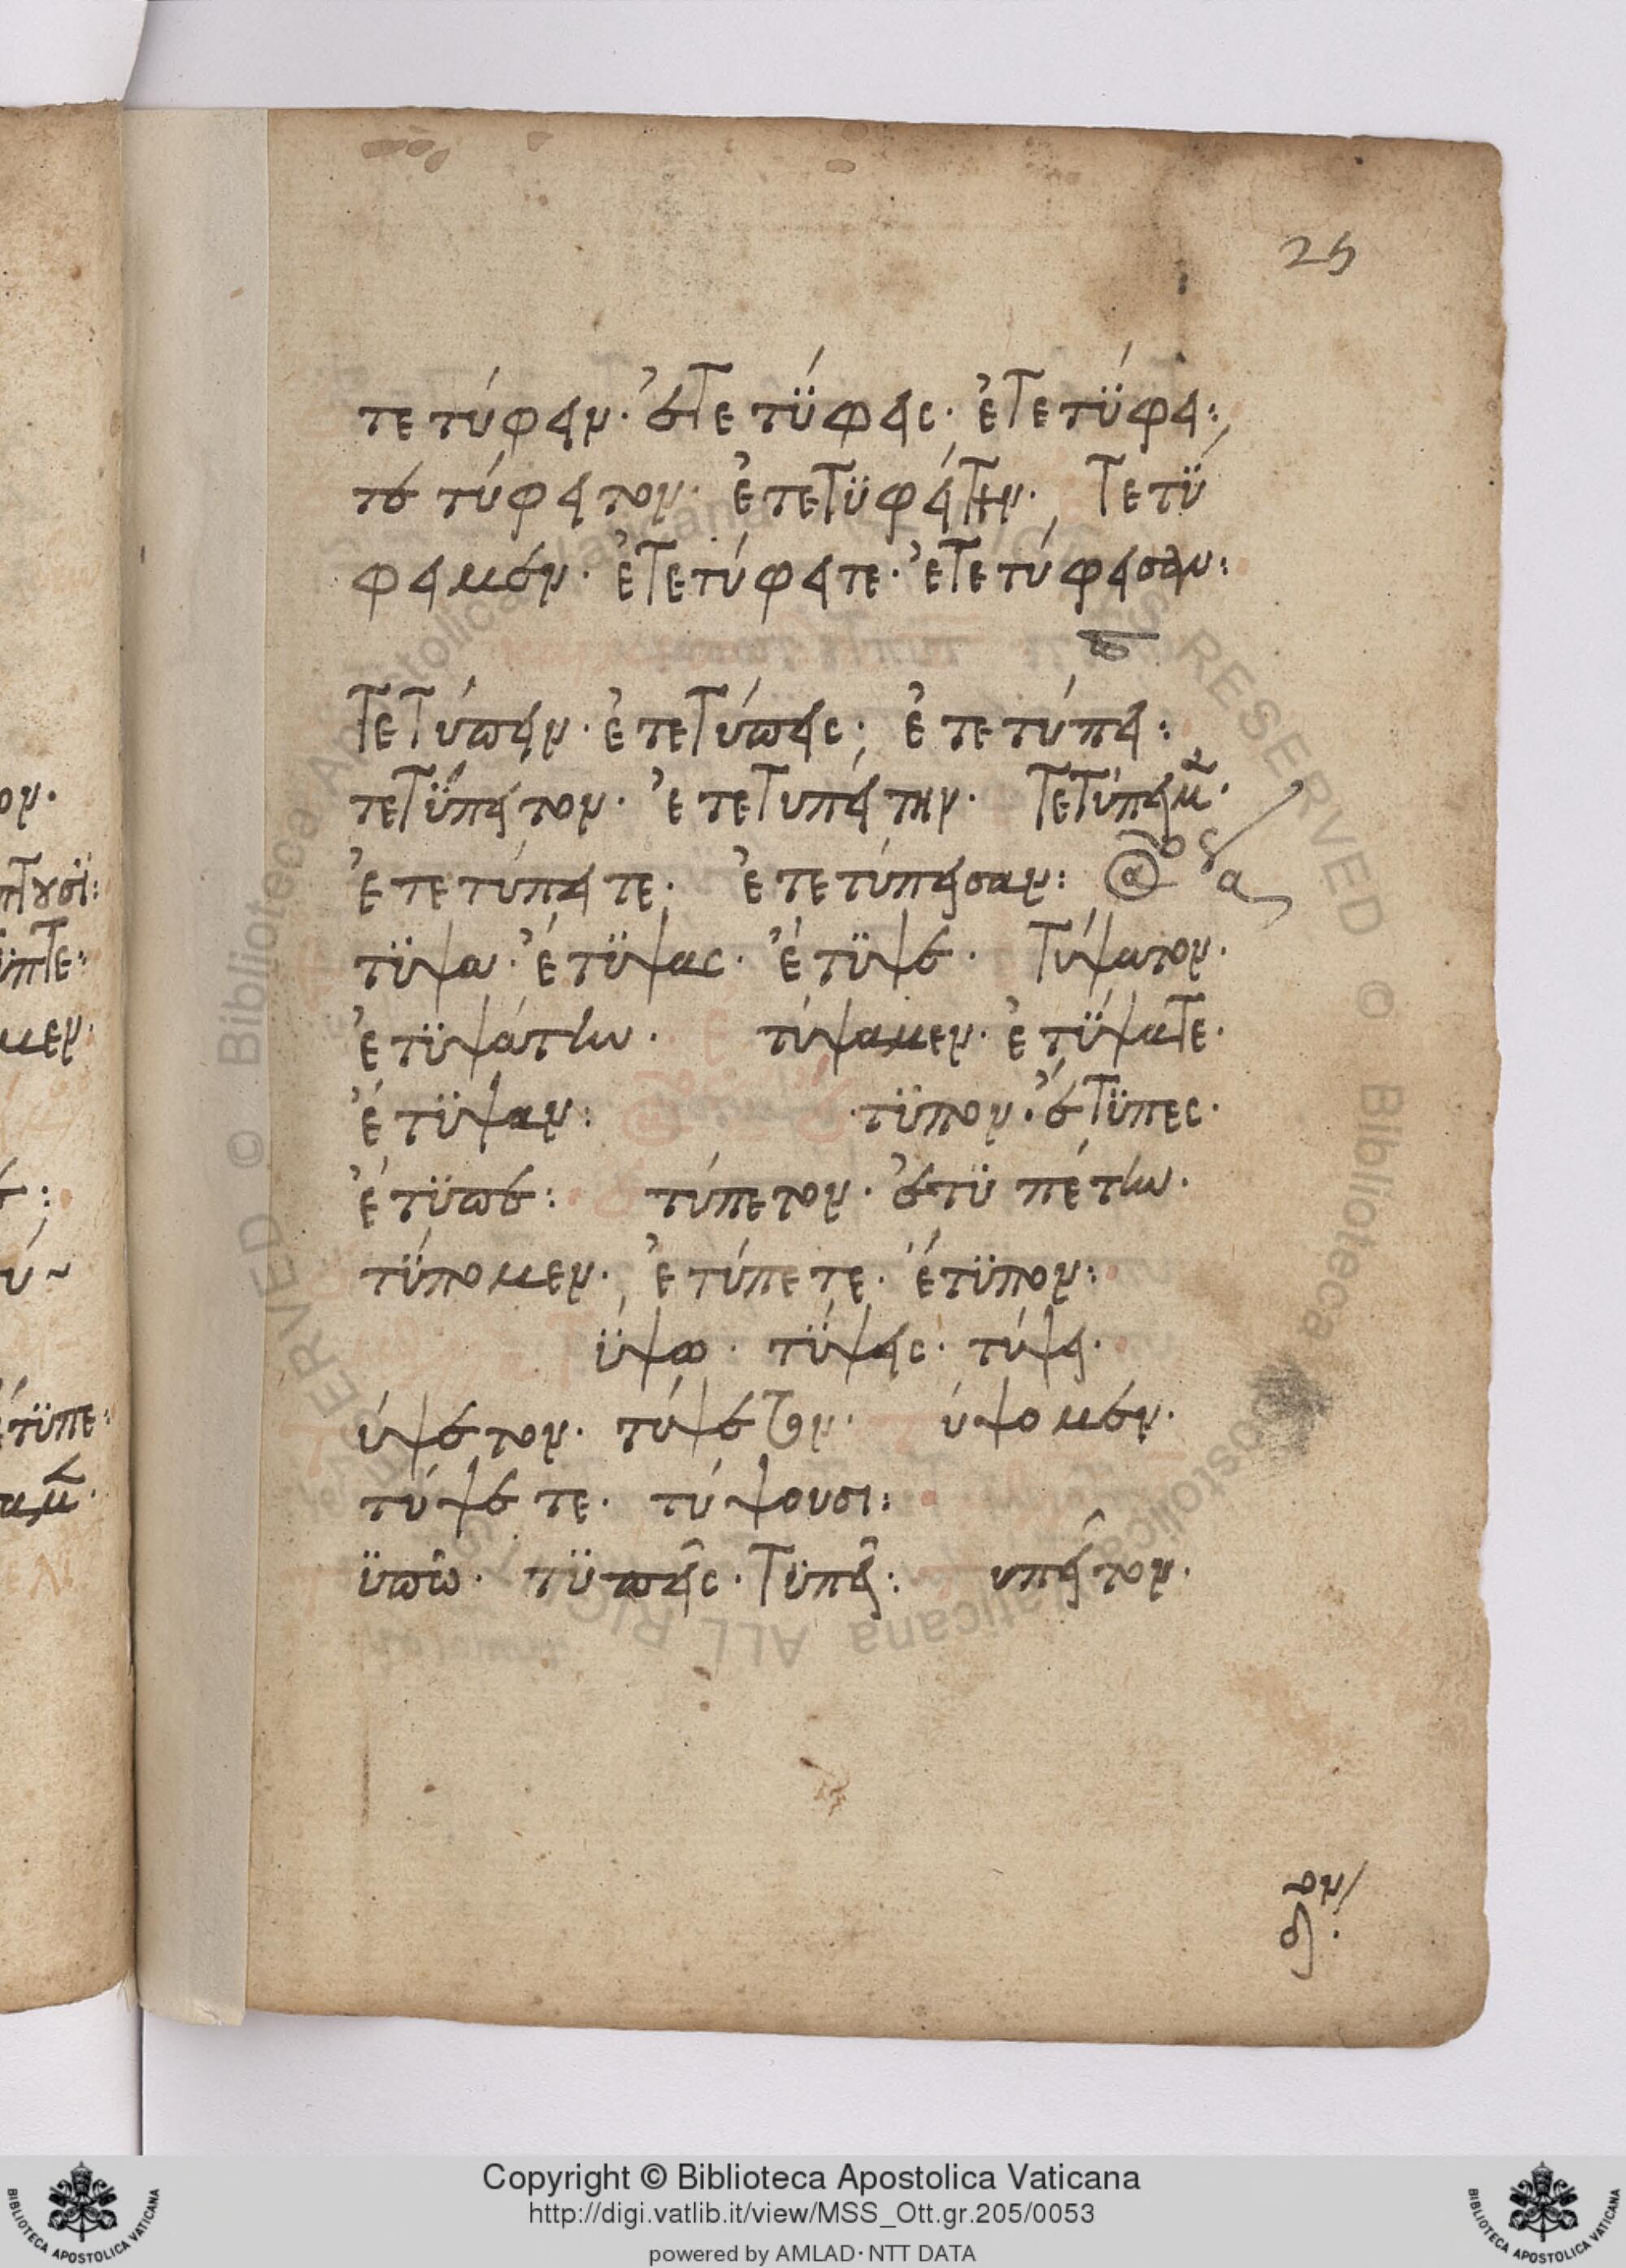 25
τετύφειν· ἐτετύφεις· ἐτετύφει:
τετύφειτον· ἐτετϋφείτην· τετϋ
φειμεν· ἐτετύφειτε· ἐτετύφεισαν:
τετύπειν· ἐτετύπεις· ἐτετύπει:
τετϋπειτον· ἐτετυπείτην· τετύπειμ
ἐτετύπειτε· ἐτετύπεισαν: α
τϋψα· ἐτϋψας· ἐτϋψε· τύψατον·
ἐτϋψάτην· τύψαμεν· ἐτϋψατε·
ἐτϋψαν: τϋπον· ἐτϋπες·
ἐτϋπε: τύπετον· ἐτϋπέτην·
τϋπομεν· ἐτύπετε· ἐτϋπον:
ϋψω· τϋψεις· τύψει·
ύψετον· τύψετον· ύψομεν·
τύψετε· τύψουσι:
ϋπῶ· τϋπεῖς· τϋπεῖ: υπεῖτον·
ον·
πτουσϊ:
ϋπτε:
μεν·
ἐτϋπε:
αμ
Copyright © Biblioteca Apostolica Vaticana
http://digi.vatlib.it/view/MSS_Ott.gr.205/0053
powered by AMLAD·NTT DATA
BIBLIOTECA APOSTOLICA VATICANA
BIBLIOTECA APOSTOLICA VATICANA